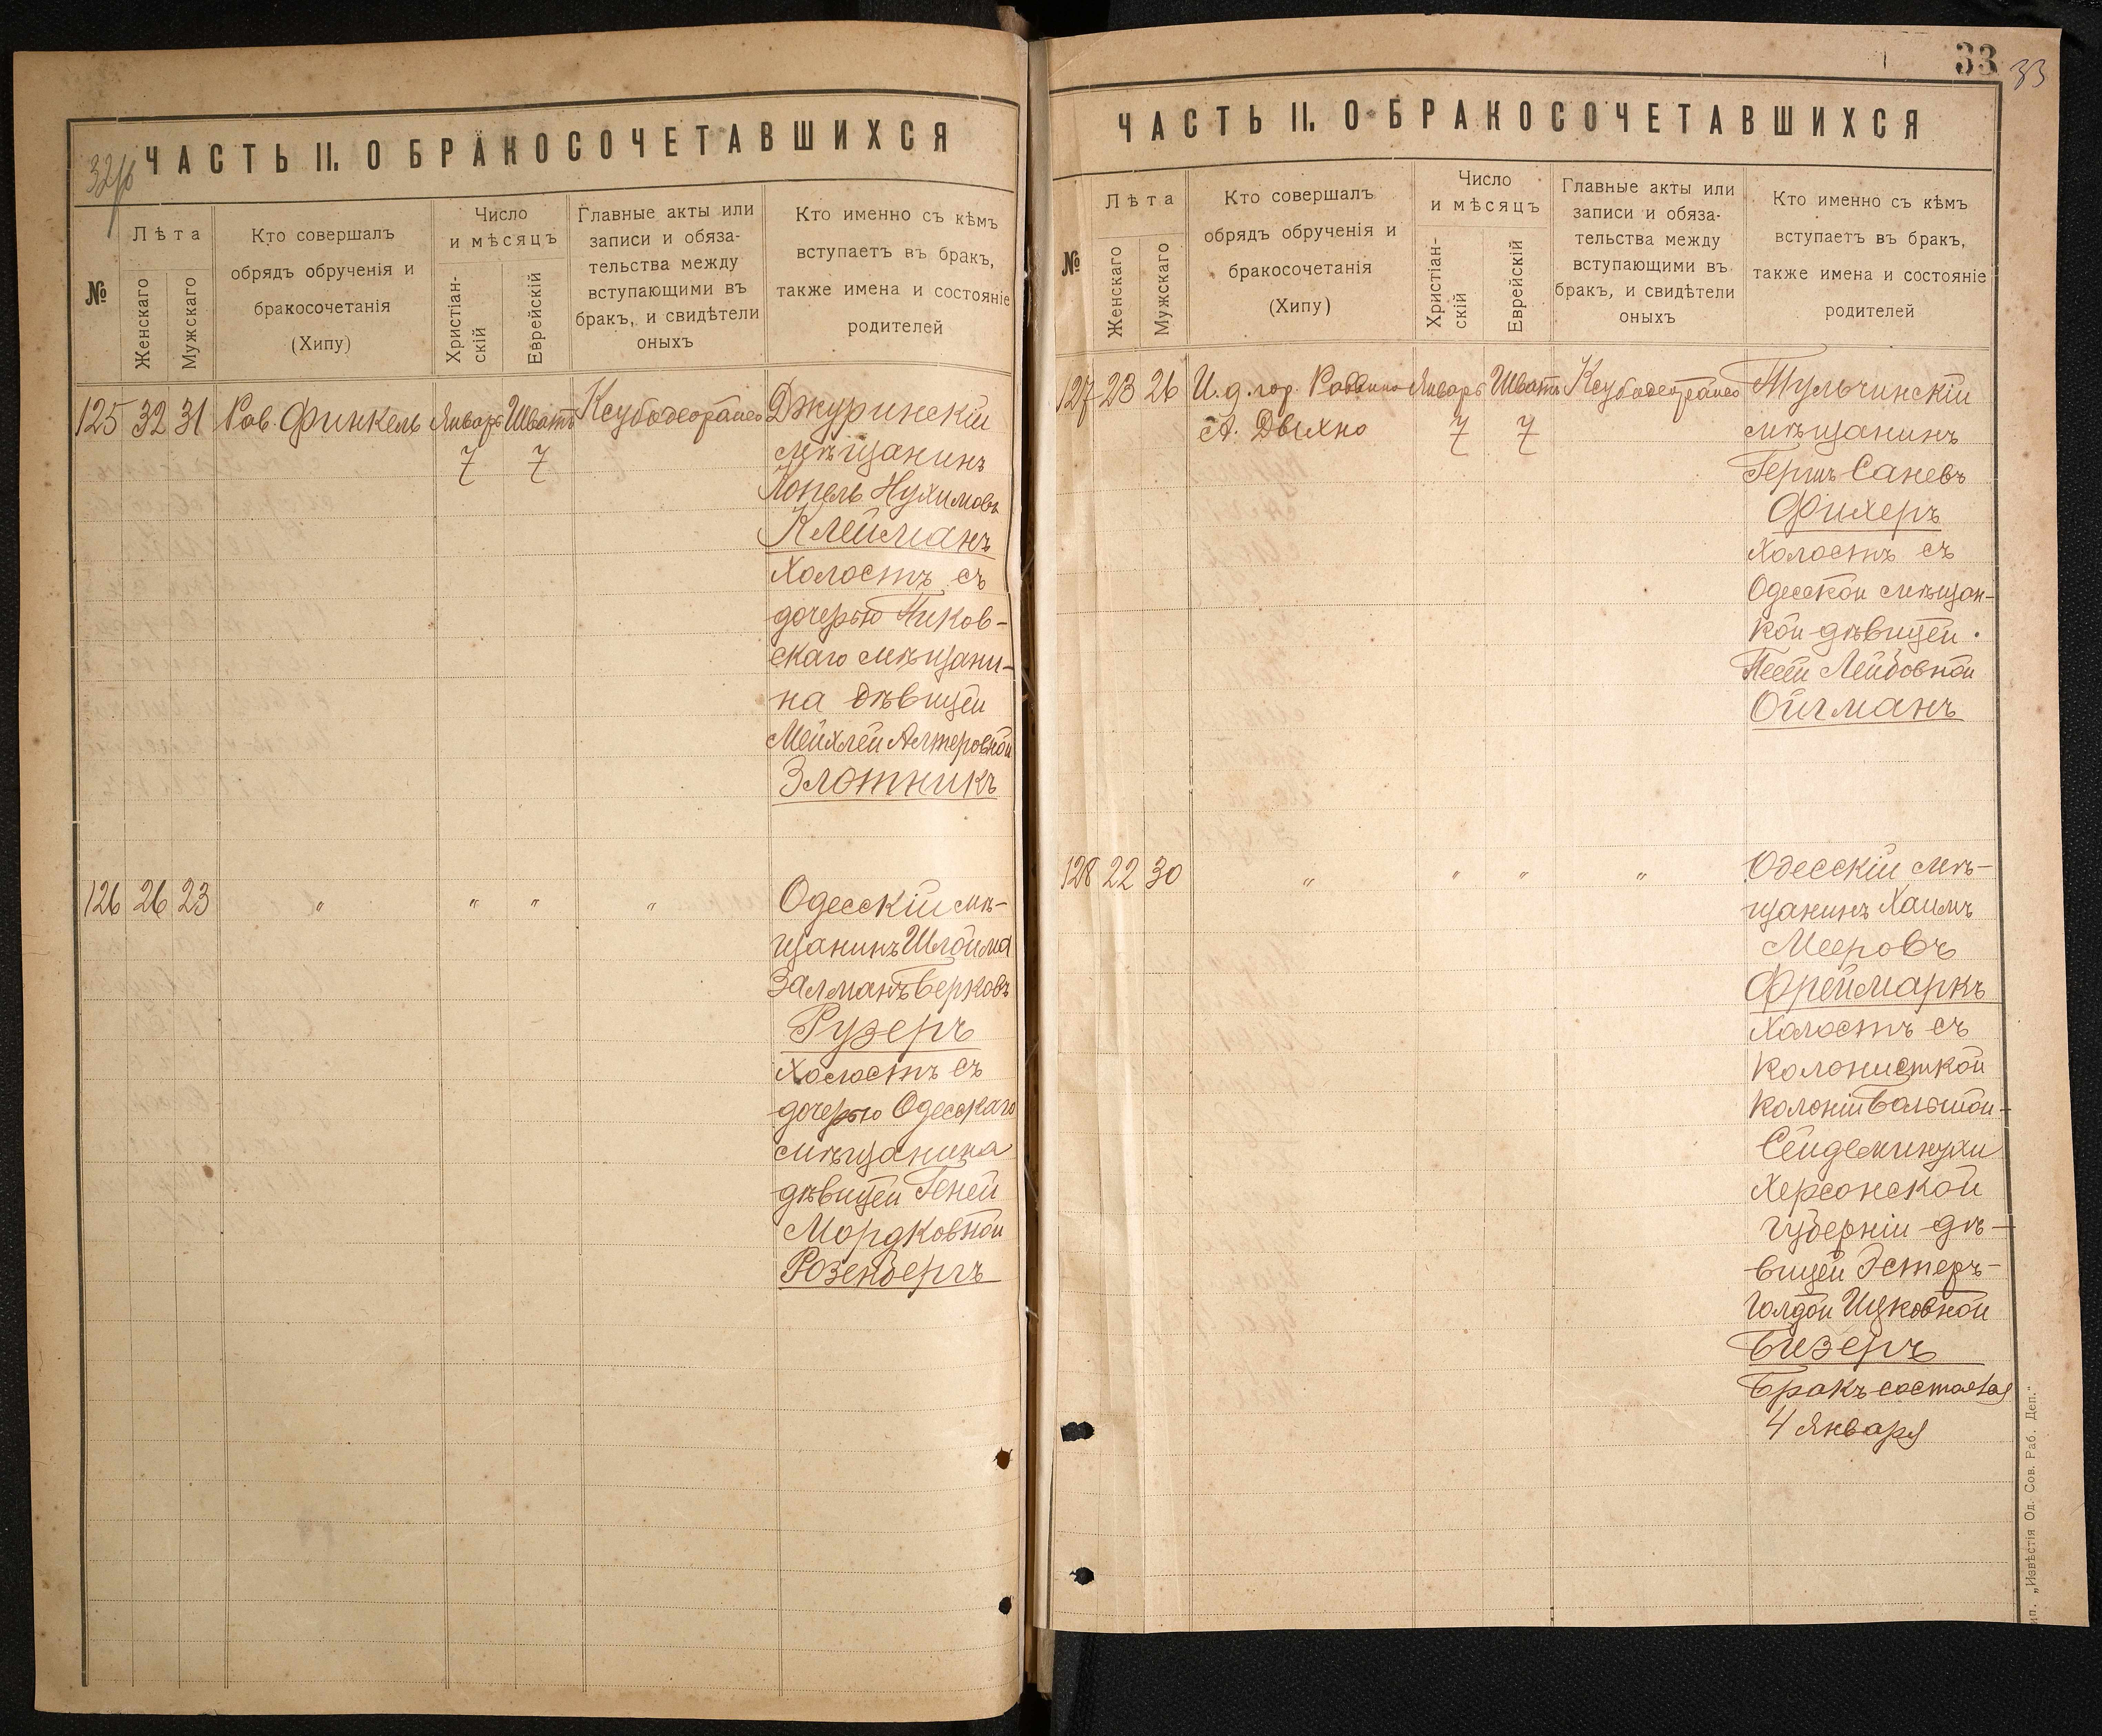 32об
ЧАСТЬ II. О БРАКОСОЧЕТАВШИХСЯ
№
Лѣта
Женскаго
Мужскаго
Кто совершалъ
обрядъ обрученія и
бракосочетанія
(Хипу)
Число
и мѣсяцъ
Христіан-
скій
Еврейскій
Главные акты или
записи и обяза-
тельства между
вступающими въ
бракъ, и свидѣтели
оныхъ
Кто именно съ кѣмъ
вступаетъ въ бракъ,
также имена и состояніе
родителей
125 32 31 Рав. Финкель Январь Шватъ Джуринскій
7 7 мѣщанинъ
Іопель Нухимовъ
Клейманъ
холостъ съ
дочерью Чиков-
скаго мѣщани-
на дѣвицей
Мейхлей Алтеровной
Злотникъ
126 26 23 " " " " Одесскій мѣ-
щанинъ Шлойма
Залманъ Берковъ
Рузеръ
холостъ съ
дочерью Одесскаго
мѣщанина
дѣвицей Геней
Мордковной
Розенбергъ
33 33
ЧАСТЬ II. О БРАКОСОЧЕТАВШИХСЯ
№
Лѣта
Женскаго
Мужскаго
Кто совершалъ
обрядъ обрученія и
бракосочетанія
(Хипу)
Число
и мѣсяцъ
Христіан-
скій
Еврейскій
Главные акты или
записи и обяза-
тельства между
вступающими въ
бракъ, и свидѣтели
оныхъ
Кто именно съ кѣмъ
вступаетъ въ бракъ,
также имена и состояніе
родителей
127 23 26 И. д. гор. Раввина Январь Шватъ Тульчинскій
А. Дыхно 7 7 мѣщанинъ
Гершъ Саневъ
Фихеръ
холостъ съ
Одесской мѣщан-
кой дѣвицей
Песей Лейбовной
Ойгманъ
128 22 30 " " " " Одесскій мѣ-
щанинъ Хаимъ
Мееровъ
Фреймаркъ
холостъ съ
колонисткой
колоніи Большой-
Сейдеминухи
Херсонской
губерніи дѣ-
вицей Эстеръ-
Голдой Ицковной
Бизеръ
Бракъ состоялся
4 Января
ип. „Извѣстія Од. Сов. Раб. Деп."